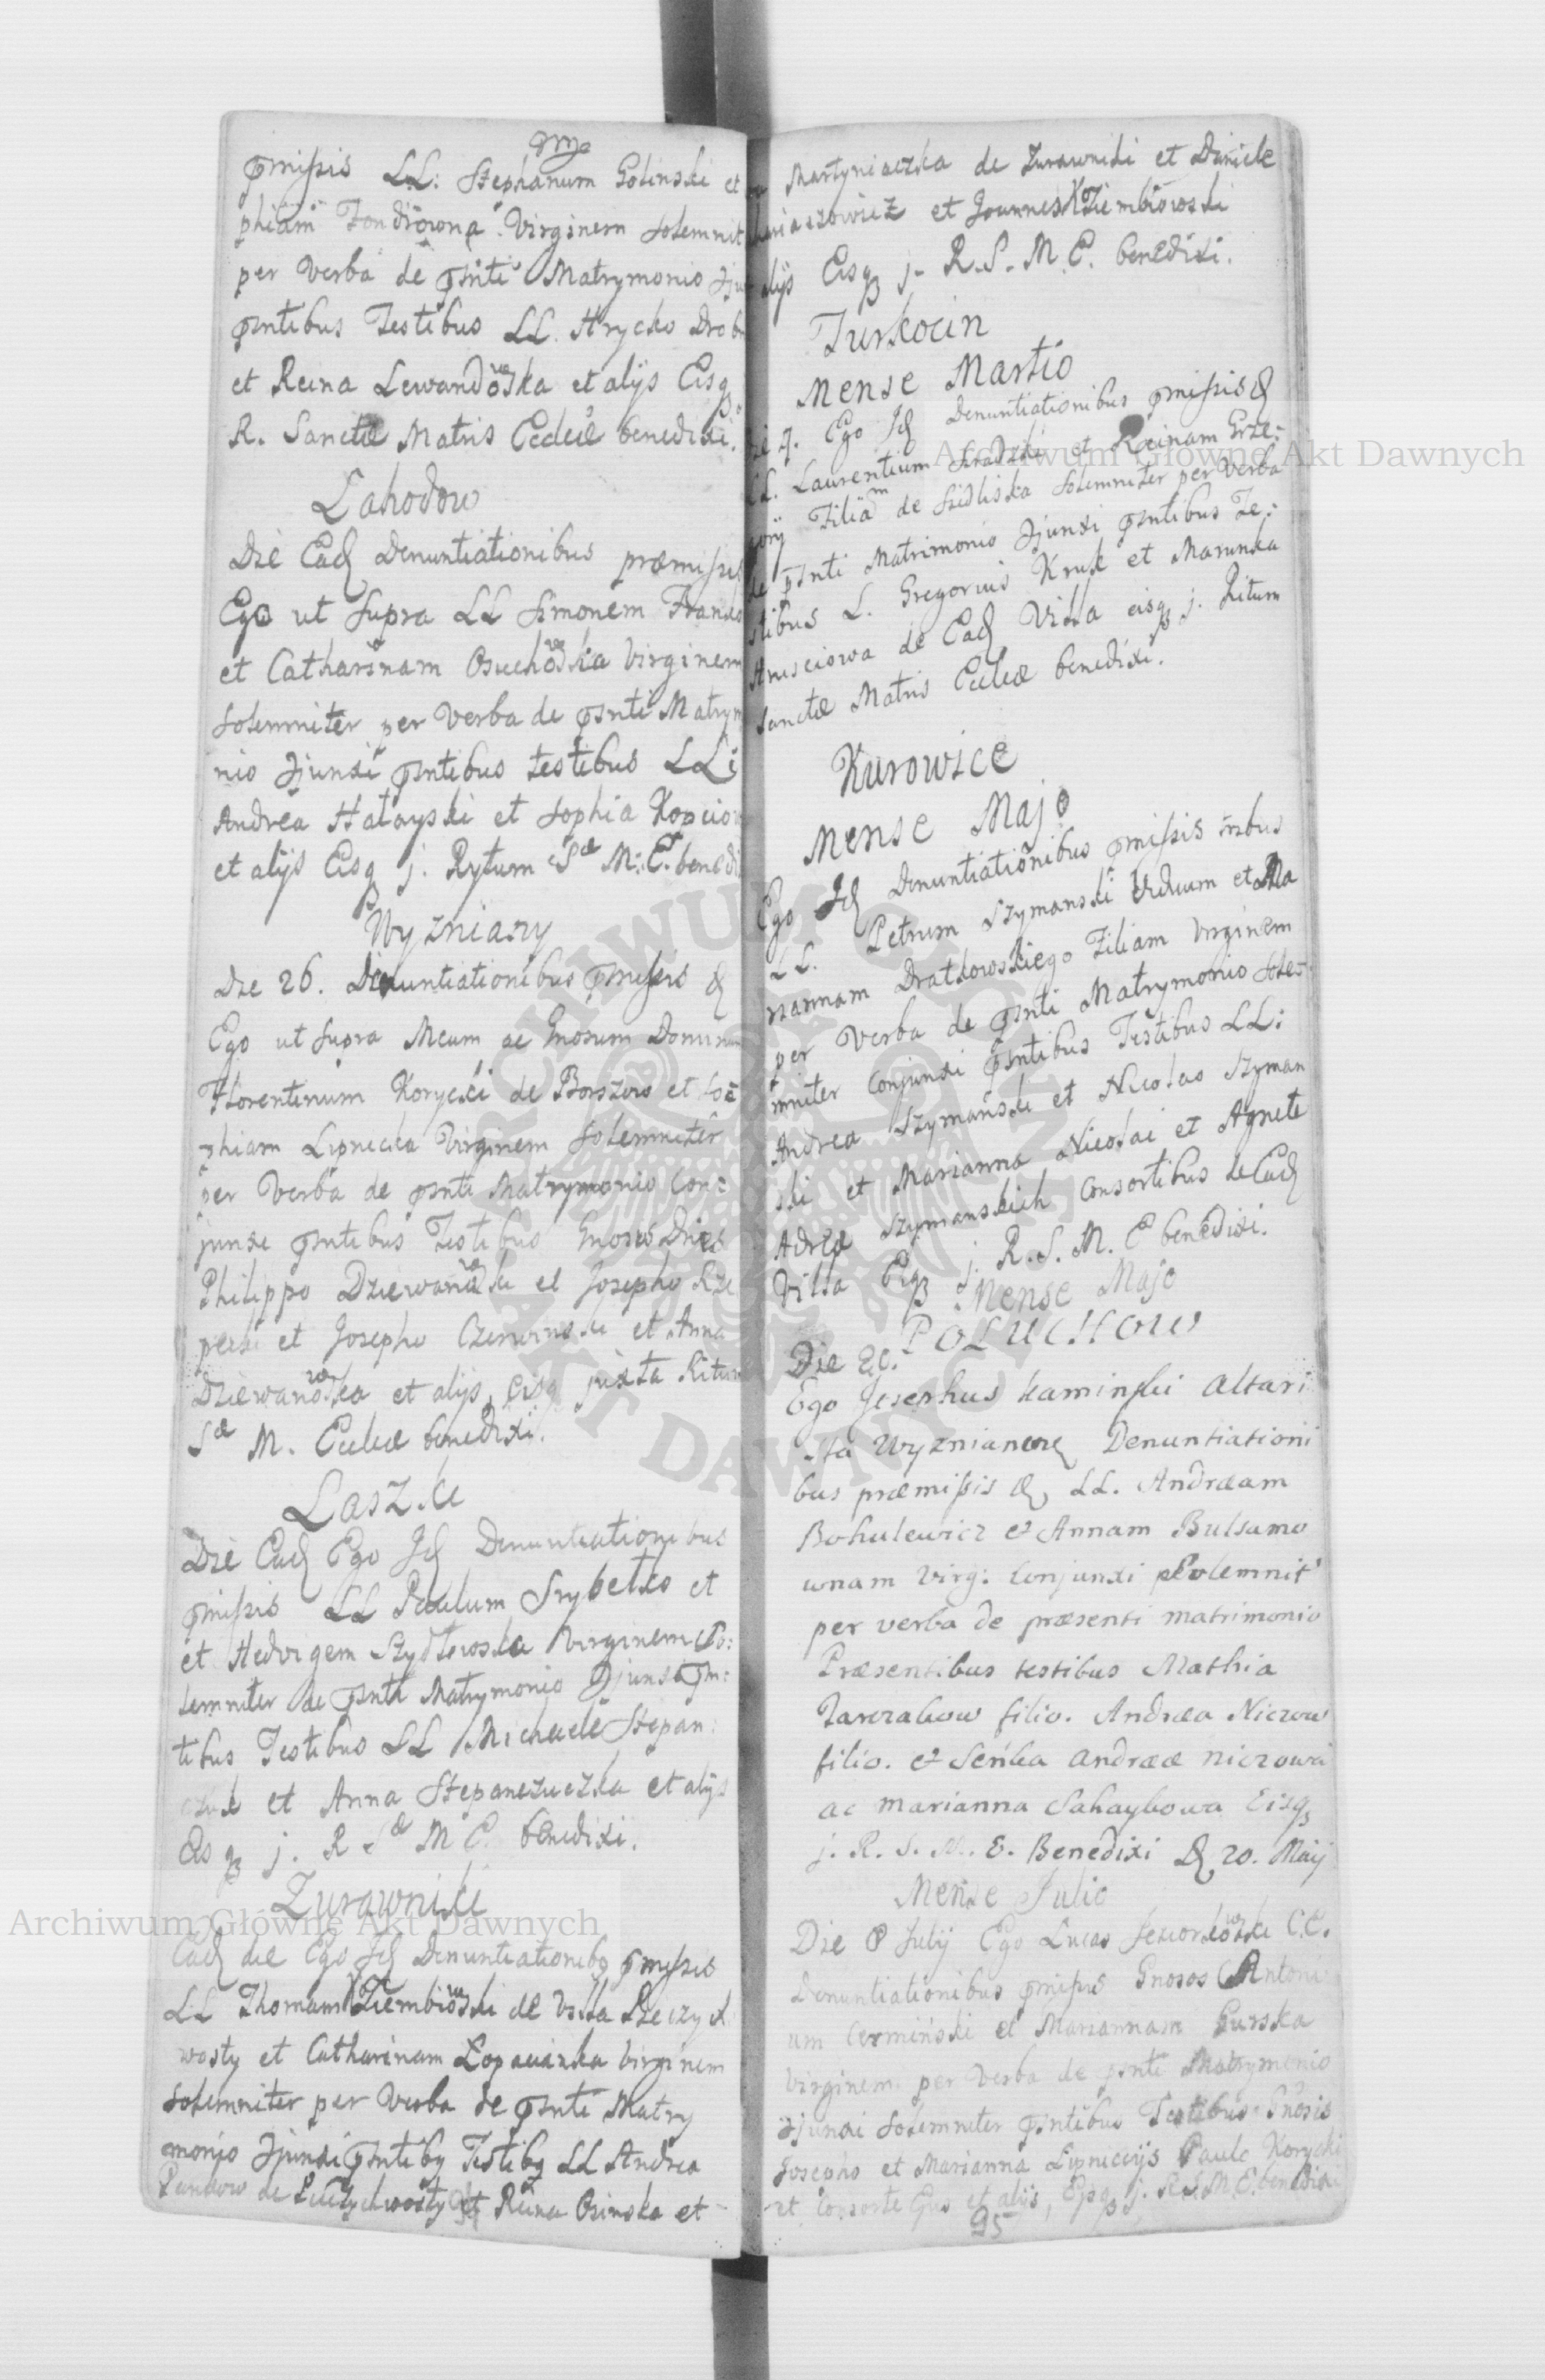 pmissis LL: Stephanum Golinski et
phiam Fondrowna Virginem Solemnit
per Verba de psnti Matrymonio
psntibus Testibus LL. Hrycko Drob
et Reina Lewandowska et alijs Eisq
R. Sanctæ Matris Eccliæ benedixi.
Lahodow
Die Ead Denuntiationibus præmissis
Ego ut Supra LL Simonem
et Catharinam Osuchowska Virginem
Solemniter per Verba de psnti Matrym
nio Cjunxi psntibus testibus LL:
Andrea Hatayski et Sophia
et alijs Eisq j. Rytum Sæ M: E. benedi
Wyzniany
Die 26. Denuntiationibus pmissis &
Ego ut Supra Meum ac Gnosum Dominum
Florentinum Korycki de Borszow et So=
phiam Lipnicka Virginem Solemniter
per Verba de psnti Matrymonio Con=
junxi psntibus Testibus Gnosis Dnis
Philippo Dziewanowski et Josepho Rze
pecki et Josepho Czerwinski et Anna
Dziewanowska et alijs, Eisq juxta Ritum
Sæ M. Eccliæ benedixi.
Laszki
Die Ead Ego Id Denuntiationibus
pmissis LL Paulum Srybelko et
et Hedvigem Szydlowska Virginem So:
lemniter de psnti Matrymonio Cjunxi psn:
tibus Testibus LL Michaele Stepan:
czuk et Anna Stepanczuczka et alijs
Eisq j. R Sæ M E. benedixi.
Zurawniki
Ead die Ego Id Denuntiationibq pmissis
LL Thomam Ziembiowski de Villa Pleczych
wosty et Catharinam Lopacinska Virginem
Solemniter per Verba de psnti Matry
monio Cjunxi psntibq Testibq LL Andrea
Pankow de et Reina Osinska et
Martyniaczka de Zurawniki et Daniele
et Joannes Ziembiowski
alijs Eisq j. R. S. M. E. benedixi.
Turkocin
Mense Martio
7. Ego Id Denuntiationibus pmissis &
LL. Laurentium et Reinam Grze:
gorij Filiam de Sidliska Solemniter per Verba
de psnti Matrimonio Cjunxi psntibus Te:
stibus L. Gregorius Kruk et Marunka
de Ead Villa eisq j. Ritum
Sanctæ Matris Eccliæ benedixi.
Kurowice
Mense Majo
Ego Id Denuntiationibus pmissis tribus
LL. Petrum Szymanski Viduum et Ma
riannam Dratkowskiego Filiam Virginem
per Verba de psnti Matrymonio Sole=
mniter Conjunxi psntibus Testibus LL:
Andrea Szymanski et Nicolao Szyman
ski et Marianna Nicolai et Agnete
Adreæ Szymanskich Consortibus de Ead
Villa Eisq j. R. S. M. E benedixi.
Mense Majo
POLUCHOW
Die 20.
Ego Josephus Kaminski Altari
sta Wyznianen Denuntiationi
bus præmissis &, LL. Andræam
Bohulewicz & Annam Bulsamo
wnam Virg: Conjunxi Solemnit
per verba de præsenti matrimonio
Præsentibus testibus Mathia
Tarczakow filio. Andræa Niczow
filio. & Seńka Andrææ Niczowa
ac Marianna Sahaybowa Eisq
j. R. S. M. E. Benedixi D 20. Maij
Mense Julio
Die 8 Julij Ego Lucas Jeziorkowski C.E.
Denuntiationibus pmissis Gnosos Antoni
um Cermiński et Mariannam Gurska
Virginem per Verba de psnti Matrymonio
Cjunxi Solemniter psntibus Testibus Gnosis
Josepho et Marianna Lipniccijs Paulo Korycki
et Consorte Ejus et alijs, Eisq j. R. S. M. E. benedixi
95
Archiwum Główne Akt Dawnych
Archiwum Główne Akt Dawnych
ARCHIWUM GŁÓWNE AKT DAWNYCH